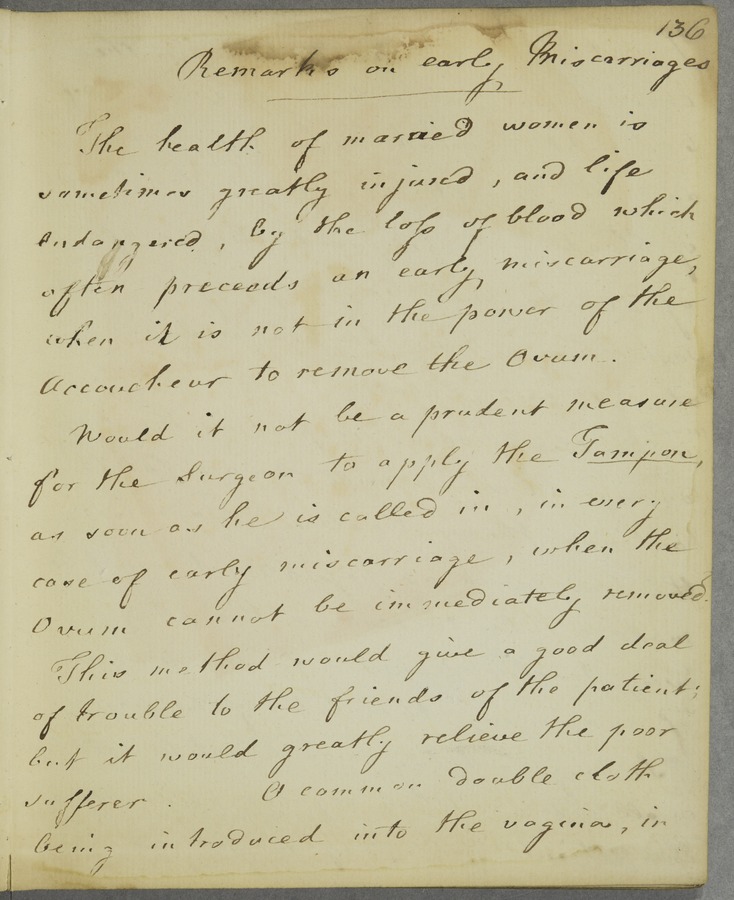 136
Remarks on early Miscarriages
The health of married women is
sometimes greatly injured, and life
endangered, by the loss of blood which
often preceeds an early miscarriage,
when it is not in the power of the
Accoucheur to remove the Ovum.
Would it not be a prudent measure
for the Surgeon to apply the Tampon,
as soon as he is called in, in every
case of early miscarriage, when the
Ovum cannot be immediately removed.
This method would give a good deal
of trouble to the friends of the patient;
but it would greatly relieve the poor
sufferer. A common double cloth
being introduced into the vagina, in